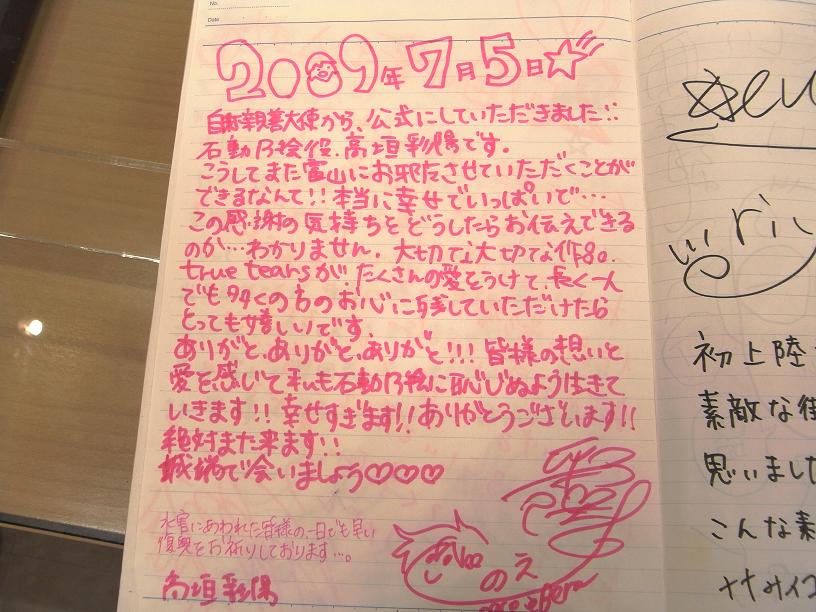 No.
Date
2009年7月5日
自称親善大使から、公式にしていただきました!!
石動乃絵役、高垣彩陽です。
こうしてまた富山にお邪魔させていただくことが
できるなんて!!本当に幸せでいっぱいで…
この感謝の気持ちをどうしたらお伝えできる
のか…わかりません。大切で大切な作品。
true tearsが、たくさんの愛をうけて、長く一人
でも多くの方のお心に残していただけたら
とっても嬉しいです。
ありがと、ありがと、ありがと!!!皆様の想いと
愛を感じて私も石動乃絵に恥じぬよう生きて
いきます!!幸せすぎます!!ありがとうございます!!
絶対また来ます!!
城端で会いましょう♡♡♡
水害にあわれた皆様の、一日でも早い
復興をお祈りしております…。
高垣彩陽
のえ
初上陸
素敵な街
思いました
こんな素